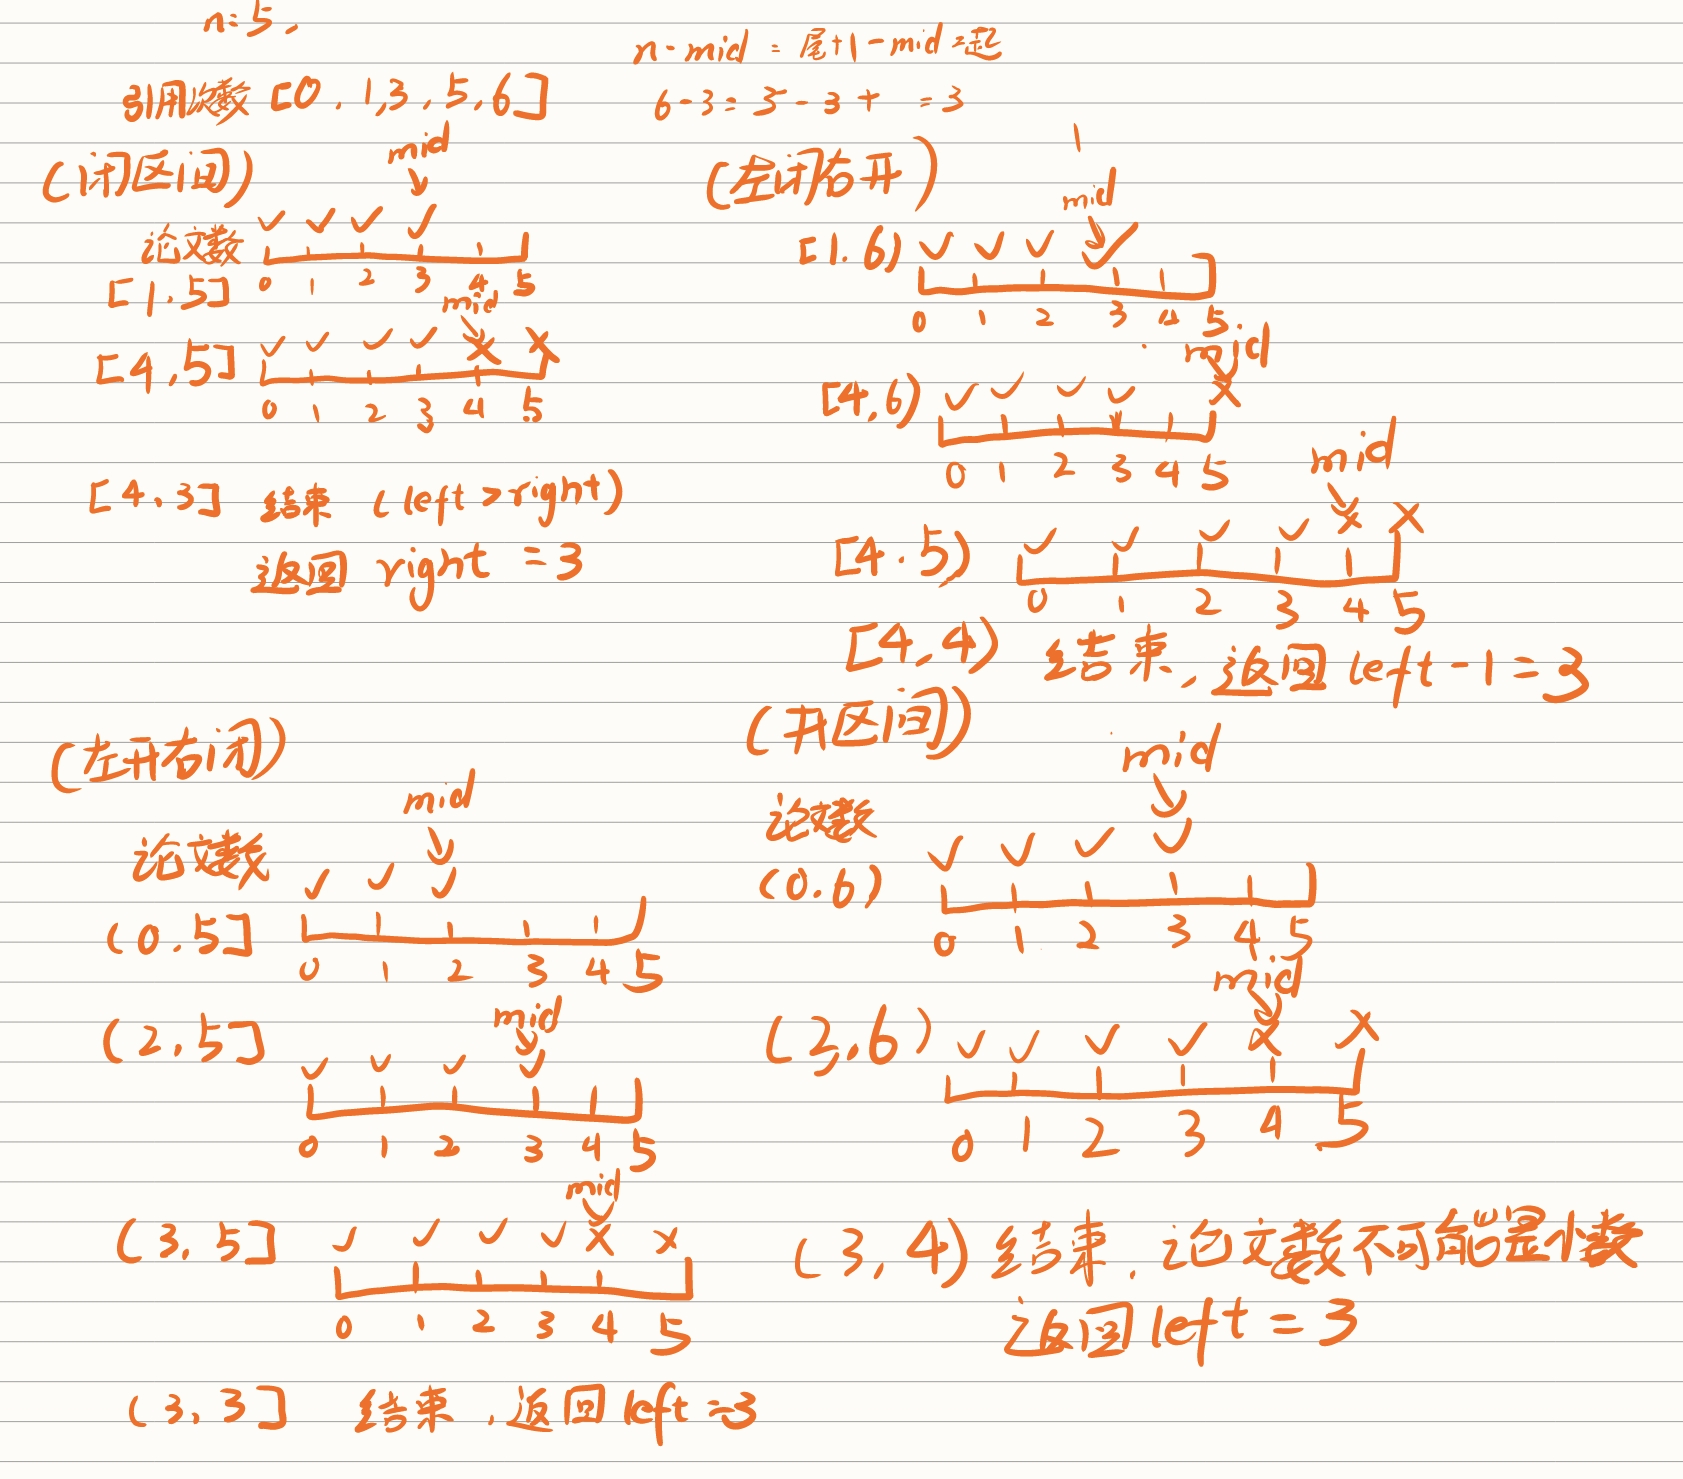 n=5,
引用次数 [0,1,3,5,6]
n-mid = 尾+1-mid =起
6-3= 5-3+ =3
1
(闭区间)
mid
论文数
[1.5]
0 1 2 3 4 5
mid
[4,5]
0 1 2 3 4 5
[4,3] 结束 (left>right)
返回 right =3
(左闭右开)
mid
[1.6)
0 1 2 3 4 5
mid
[4,6)
0 1 2 3 4 5
mid
[4.5)
0 1 2 3 4 5
[4,4) 结束,返回 left-1=3
(左开右闭)
mid
论文数
(0.5]
0 1 2 3 4 5
mid
(2,5]
0 1 2 3 4 5
mid
(3,5]
0 1 2 3 4 5
(3,3] 结束,返回 left=3
(开区间)
mid
论文数
(0.6)
0 1 2 3 4 5
mid
(3,6)
0 1 2 3 4 5
(3,4) 结束.论文数不可能是小数
返回 left=3